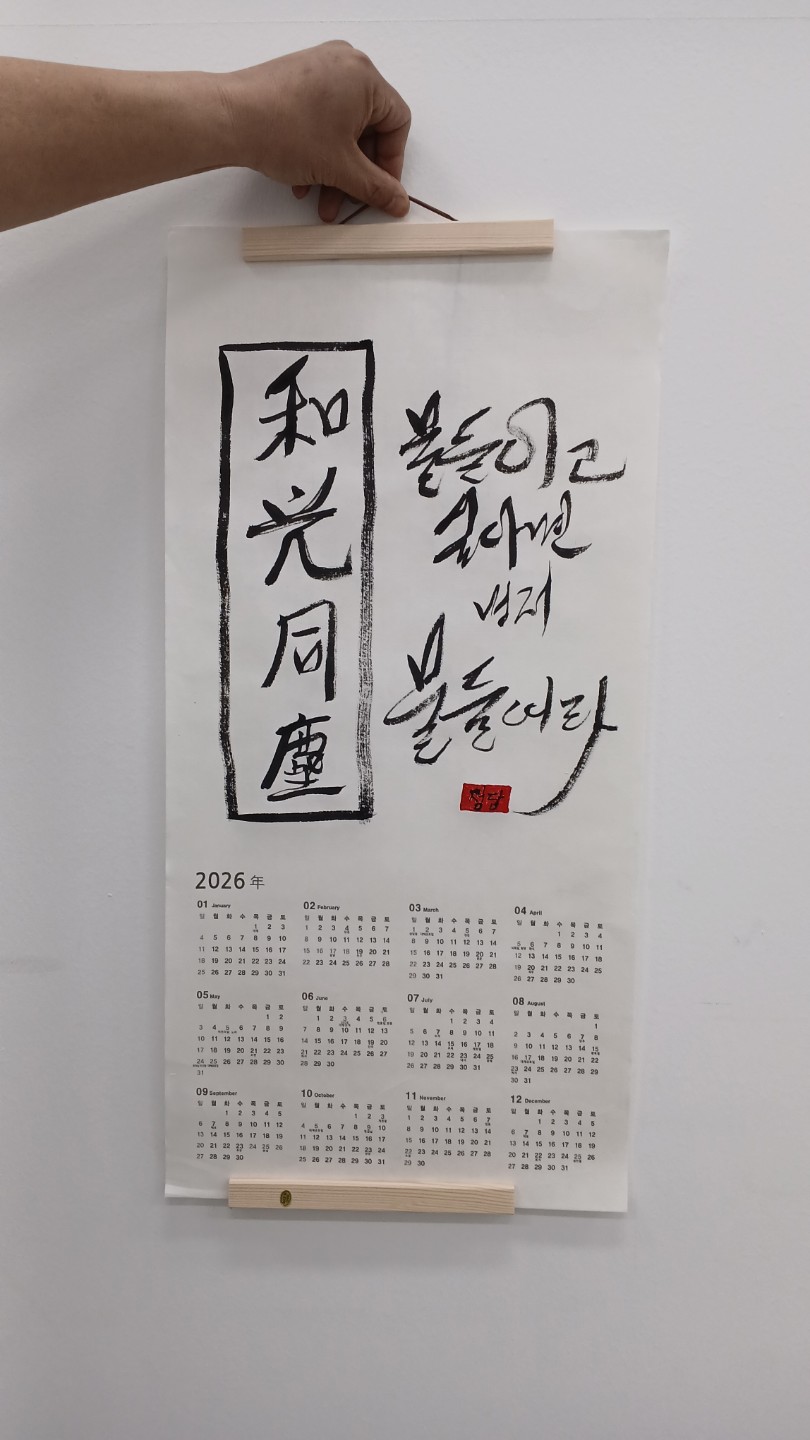 和光同塵
물들이고
싶다면
먼저
물들어라
정당
2026 年
01 January
일 월 화 수 목 금 토
1 2 3
4 5 6 7 8 9 10
11 12 13 14 15 16 17
18 19 20 21 22 23 24
25 26 27 28 29 30 31
02 February
일 월 화 수 목 금 토
1 2 3 4 5 6 7
8 9 10 11 12 13 14
15 16 17 18 19 20 21
22 23 24 25 26 27 28
03 March
일 월 화 수 목 금 토
1 2 3 4 5 6 7
8 9 10 11 12 13 14
15 16 17 18 19 20 21
22 23 24 25 26 27 28
29 30 31
04 April
일 월 화 수 목 금 토
1 2 3 4
5 6 7 8 9 10 11
12 13 14 15 16 17 18
19 20 21 22 23 24 25
26 27 28 29 30
05 May
일 월 화 수 목 금 토
1 2
3 4 5 6 7 8 9
10 11 12 13 14 15 16
17 18 19 20 21 22 23
24 25 26 27 28 29 30
31
06 June
일 월 화 수 목 금 토
1 2 3 4 5 6
7 8 9 10 11 12 13
14 15 16 17 18 19 20
21 22 23 24 25 26 27
28 29 30
07 July
일 월 화 수 목 금 토
1 2 3 4
5 6 7 8 9 10 11
12 13 14 15 16 17 18
19 20 21 22 23 24 25
26 27 28 29 30 31
08 August
일 월 화 수 목 금 토
1
2 3 4 5 6 7 8
9 10 11 12 13 14 15
16 17 18 19 20 21 22
23 24 25 26 27 28 29
30 31
09 September
일 월 화 수 목 금 토
1 2 3 4 5
6 7 8 9 10 11 12
13 14 15 16 17 18 19
20 21 22 23 24 25 26
27 28 29 30
10 October
일 월 화 수 목 금 토
1 2 3
4 5 6 7 8 9 10
11 12 13 14 15 16 17
18 19 20 21 22 23 24
25 26 27 28 29 30 31
11 November
일 월 화 수 목 금 토
1 2 3 4 5 6 7
8 9 10 11 12 13 14
15 16 17 18 19 20 21
22 23 24 25 26 27 28
29 30
12 December
일 월 화 수 목 금 토
1 2 3 4 5
6 7 8 9 10 11 12
13 14 15 16 17 18 19
20 21 22 23 24 25 26
27 28 29 30 31